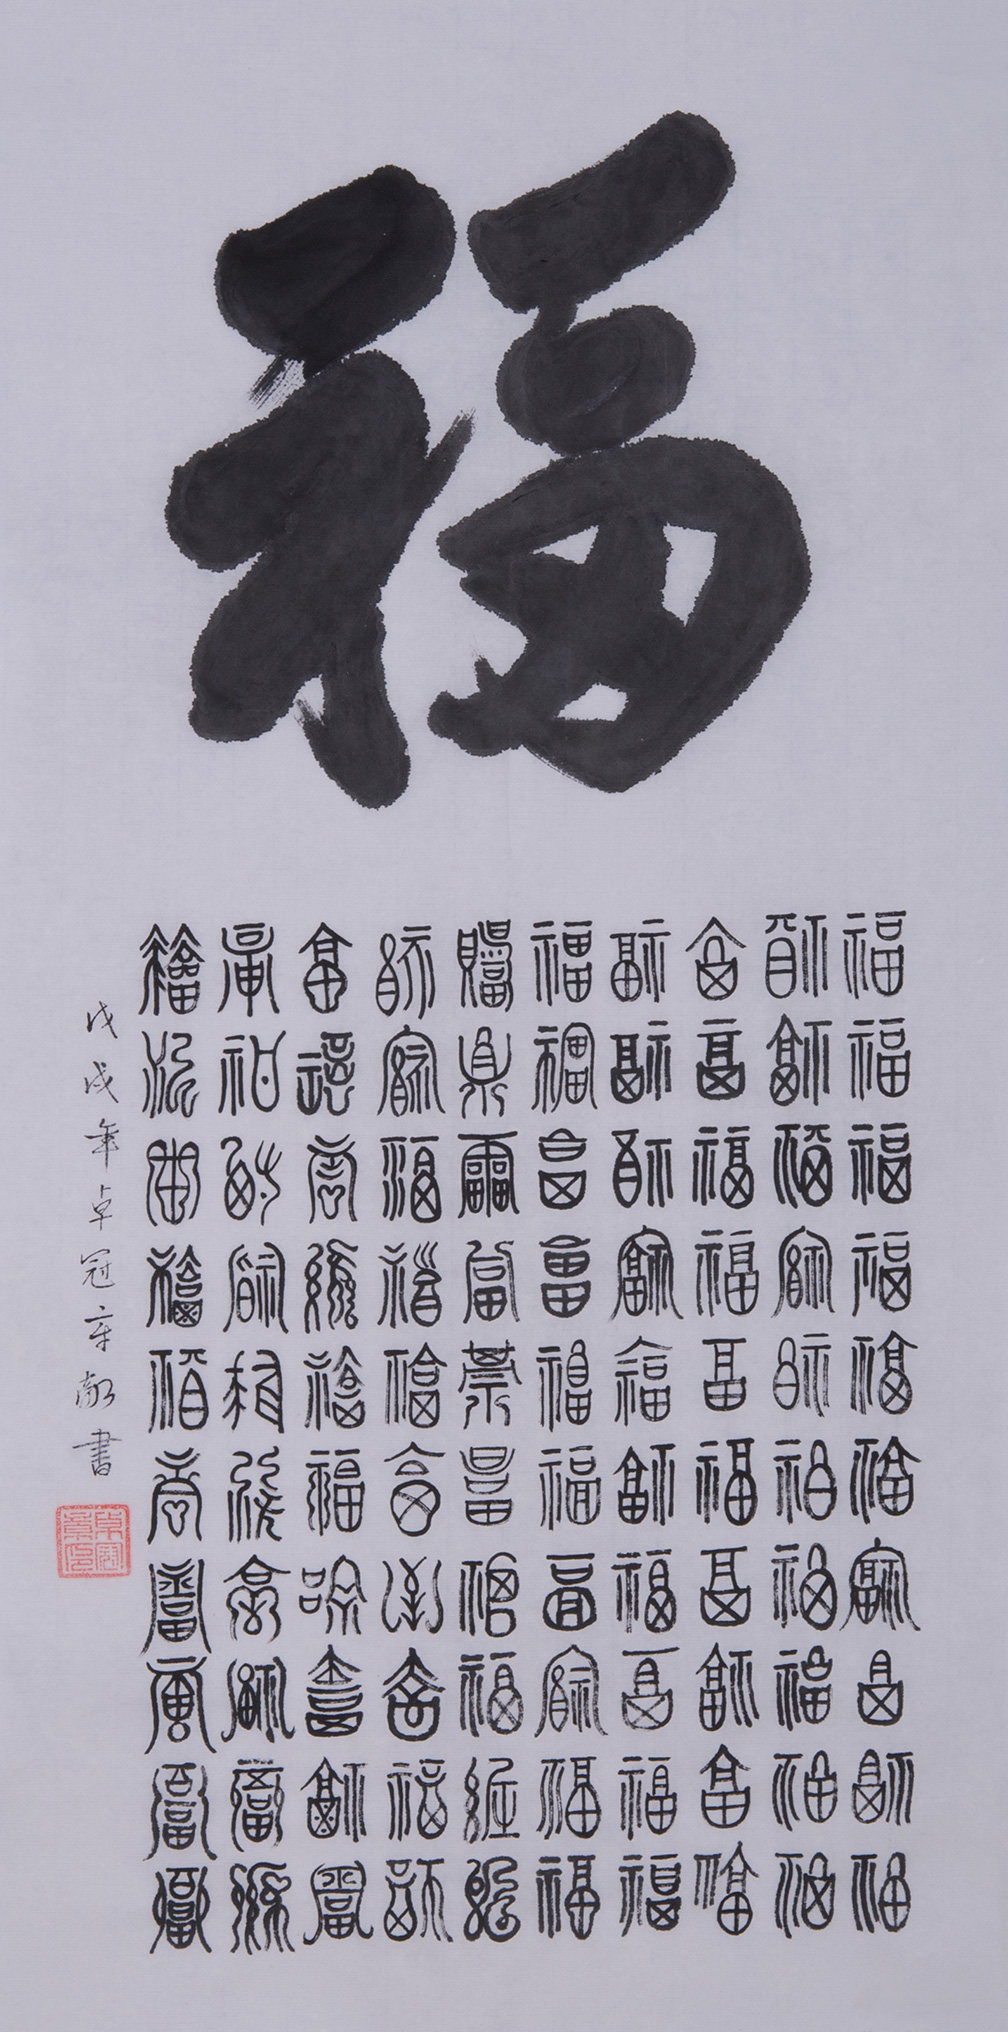 福
福福福福福福福福福福
福福福福福福福福福福
福福福福福福福福福福
福福福福福福福福福福
福福福福福福福福福福
福福福福福福福福福福
福福福福福福福福福福
福福福福福福福福福福
福福福福福福福福福福
福福福福福福福福福福
戊戌年卓冠章敬書